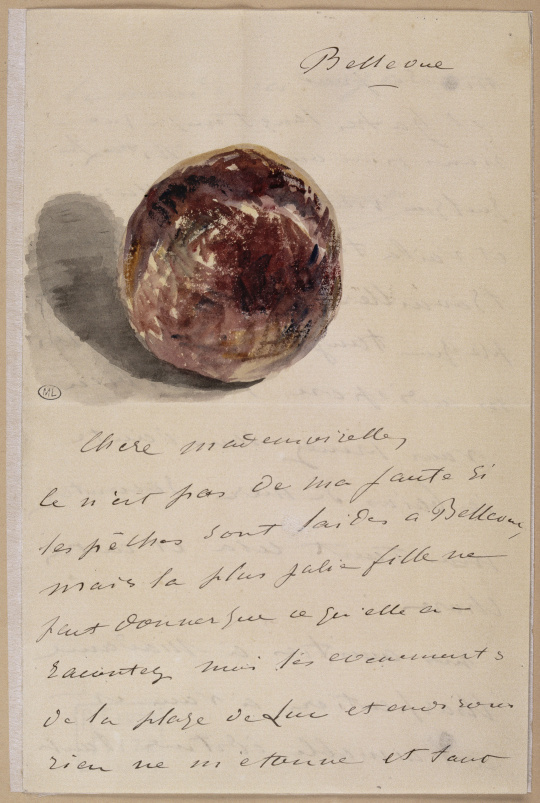 Bellevue
ML
Chere mademoiselle,
ce n'est pas de ma faute si
les pêches sont laides a Bellevue,
mais la plus jolie fille ne
peut donner que ce qu'elle a –
racontez moi les evenements
de la plage de Luc et environs
rien ne m etonne et tout